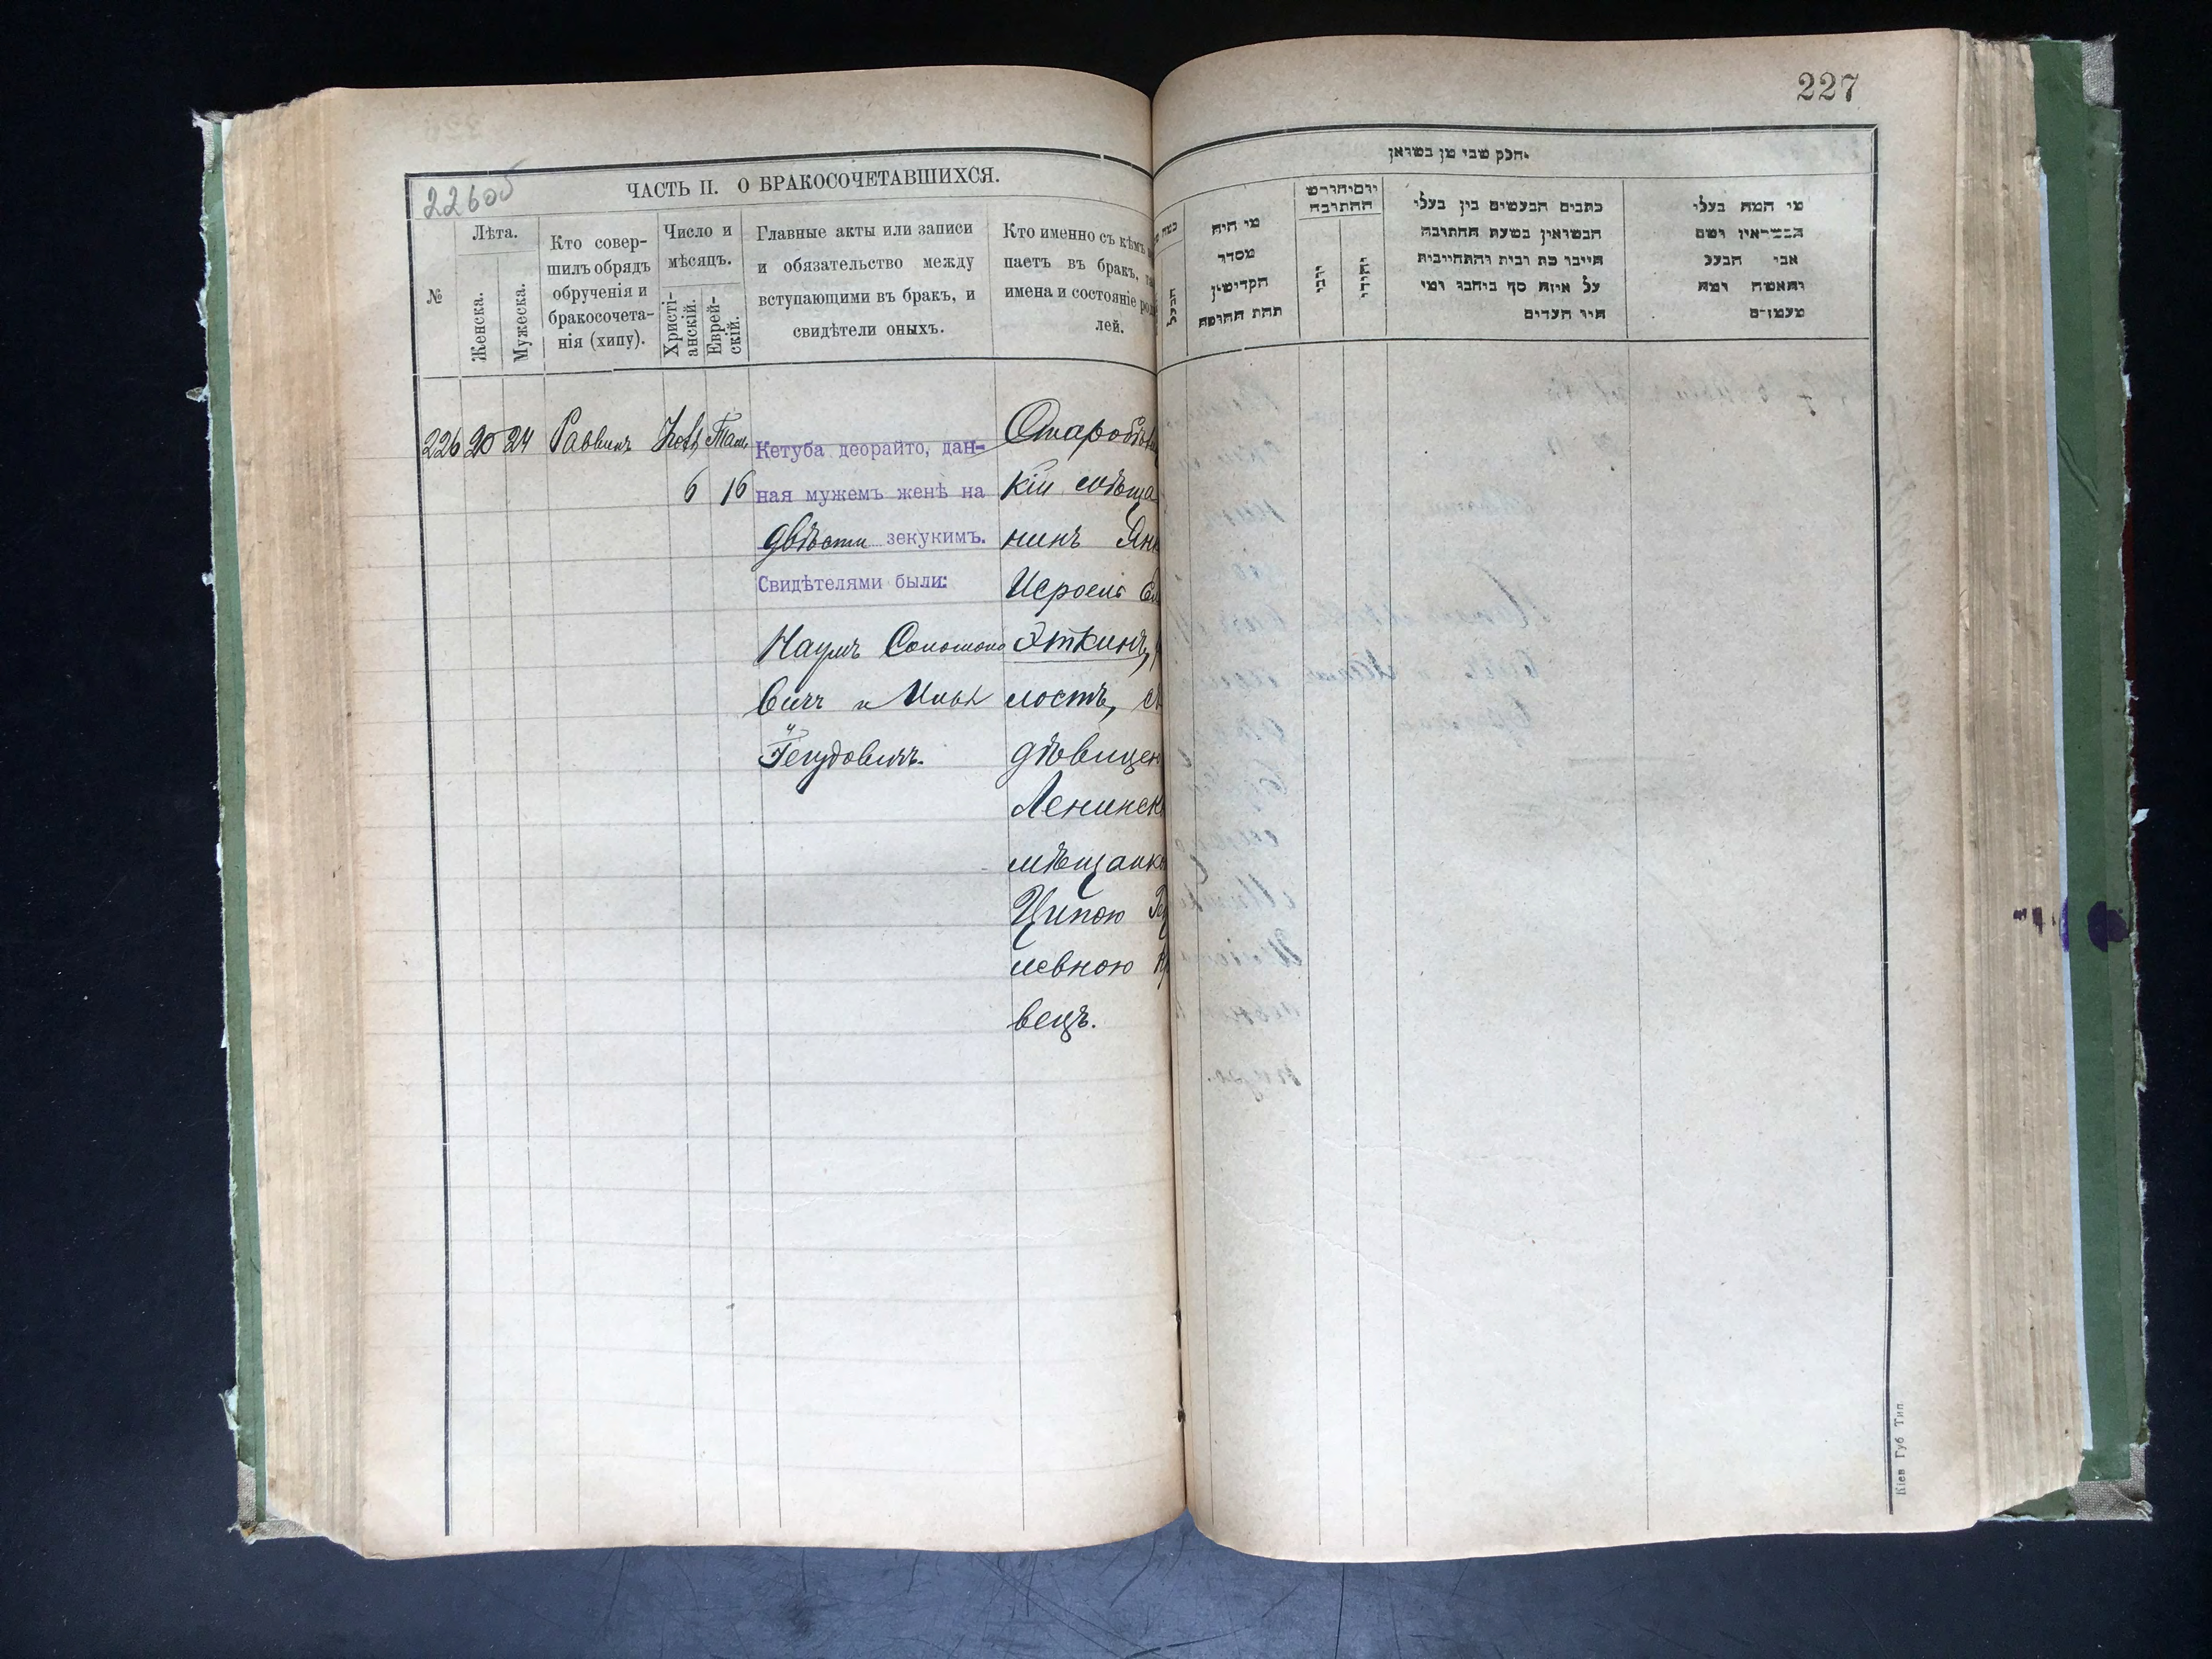 227
226об
ЧАСТЬ II. О БРАКОСОЧЕТАВШИХСЯ.
№
Лѣта.
Женска.
Мужеска.
Кто совер-
шилъ обрядъ
обрученія и
бракосочета-
нія (хипу).
Число и
мѣсяцъ.
Христі-
анскій.
Еврей-
скій.
Главные акты или записи
и обязательство между
вступающими въ брак, и
свидѣтели оныхъ.
Кто именно съ кѣмъ
паетъ въ бракъ,
имена и состояніе
лей.
226 20 24 Раввинъ
6 16
Кетуба деорайто, дан-
ная мужемъ женѣ на
двѣсти зекукимъ.
Свидѣтелями были:
Наумъ Соломоно
вичъ и
Старобы
кій мѣща
нинъ Янк
Исроель
Эткинъ,
лостъ, съ
дѣвицею
мѣщанк
Ципою
левною
вецъ.
מי היה
מסדר
הקדישין
תחת החופה
כתבים הנעשים בין בעלי
הנשואין בשעת החתונה
על איזה סך ביחבו ומי
היו העדים
מי המה בעלי
הנשואין ושם
אבי הבעל
והאשה ומה
מעמדם
Кіев Губ Тип